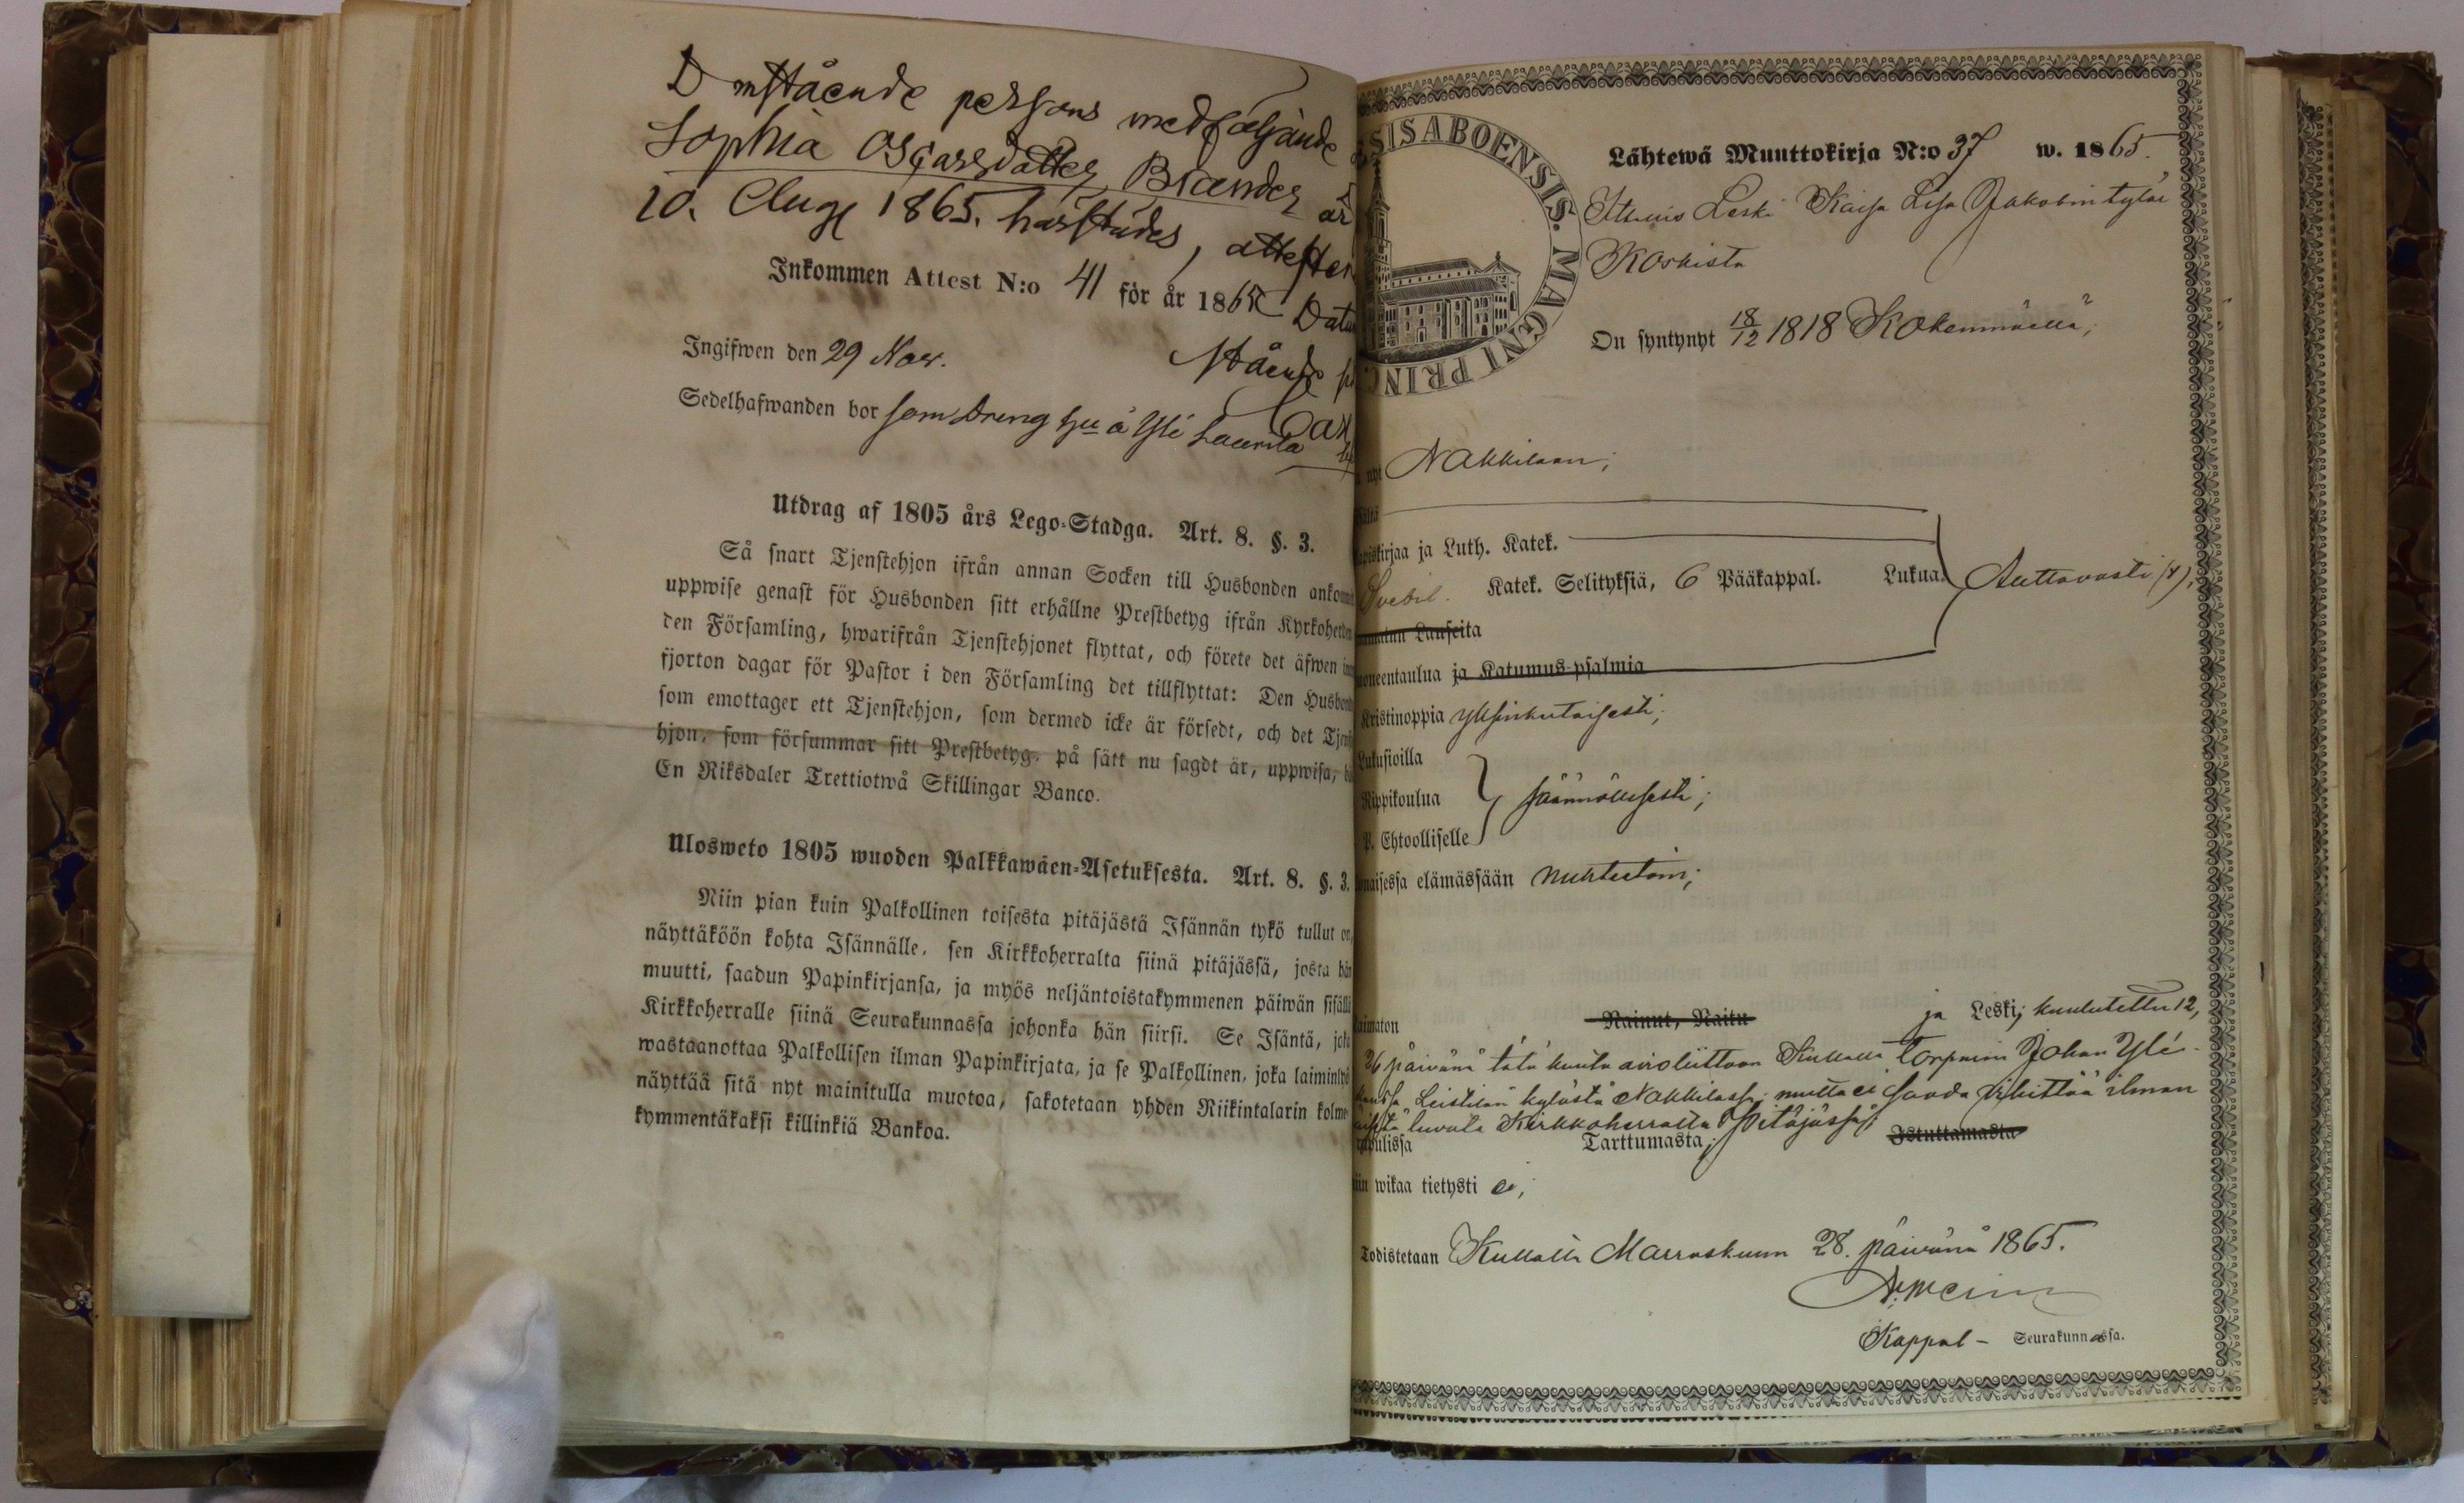 Omstående persons medföljande
Sophia Oscarsdotter Brander är
20. Aug 1865. härstädes, attester
Inkommen Attest N:o 41 för år 1865 Datu
Ingifwen den 29 Nov. stående
Sedelhafwanden bor som Dreng hu å Yli Laurila
Utdrag af 1805 års Lego-Stadga. Art. 8. §. 3.
Så snart Tjenstehjon ifrån annan Socken till Husbonden ankommit
uppwise genast för Husbonden sitt erhållne Prestbetyg ifrån Kyrkoherden
den Församling, hwarifrån Tjenstehjonet flyttat, och förete det äfwen
fjorton dagar för Pastor i den Församling det tillflyttat: Den Husbonde
som emottager ett Tjenstehjon, som dermed icke är försedt, och det Tjenste
hjon, som försummar sitt Prestbetyg, på sätt nu sagdt är, uppwisa,
En Riksdaler Trettiotwå Skillingar Banco.
Ulosweto 1805 wuoden Palkkawäen-Asetuksesta. Art. 8. §. 3.
Niin pian kuin Palkollinen toisesta pitäjästä Isännän tykö tullut on,
näyttäköön kohta Isännälle, sen Kirkkoherralta siinä pitäjässä, josta hän
muutti, saadun Papinkirjansa, ja myös neljäntoistakymmenen päiwän sisällä
Kirkkoherralle siinä Seurakunnassa johonka hän siirsi. Se Isäntä, joka
wastaanottaa Palkollisen ilman Papinkirjata, ja se Palkollinen, joka laiminlyö
näyttää sitä nyt mainitulla muotoa, sakotetaan yhden Riikintalarin kolme
kymmentäkaksi killinkiä Bankoa.
SISABOENSIS. MAGNI PRINC
Lähtewä Muuttokirja N:o 37 w. 1865.
Itsuis Leski Kaisa Lisa Jakobin tytär
Koskista
On syntynyt 18/12 1818 Kokemäellä;
nyt Nakkilaan;
kirjaa ja Luth. Katek.
Svebil. Katek. Selityksiä, 6 Pääkappal. Lukua. Auttavasti (+);
Lauseita
oneentaulua ja Katumus-psalmia
Kristinoppia yksinkertaisesti;
Lukusioilla
Rippikoulua säännöllisesti;
P. Ehtoolliselle
naisessa elämässään nuhteetoin;
aimaton Nainut, Naitu ja Leski; kuulutettu 12,
26 päivänä tätä kuuta avioliittoon Kullaalla torpparin Johan Yli-
kanssa Leistilän kylästä Nakkilassa; mutta ei saada vihittää ilman
luvata Kirkkoherralta Pitäjässä;
Tarttumasta; Istuttamasta
wikaa tietysti ei;
Todistetaan Kullaalla Marraskuun 28. päivänä 1865.
Kappal- Seurakunnassa.